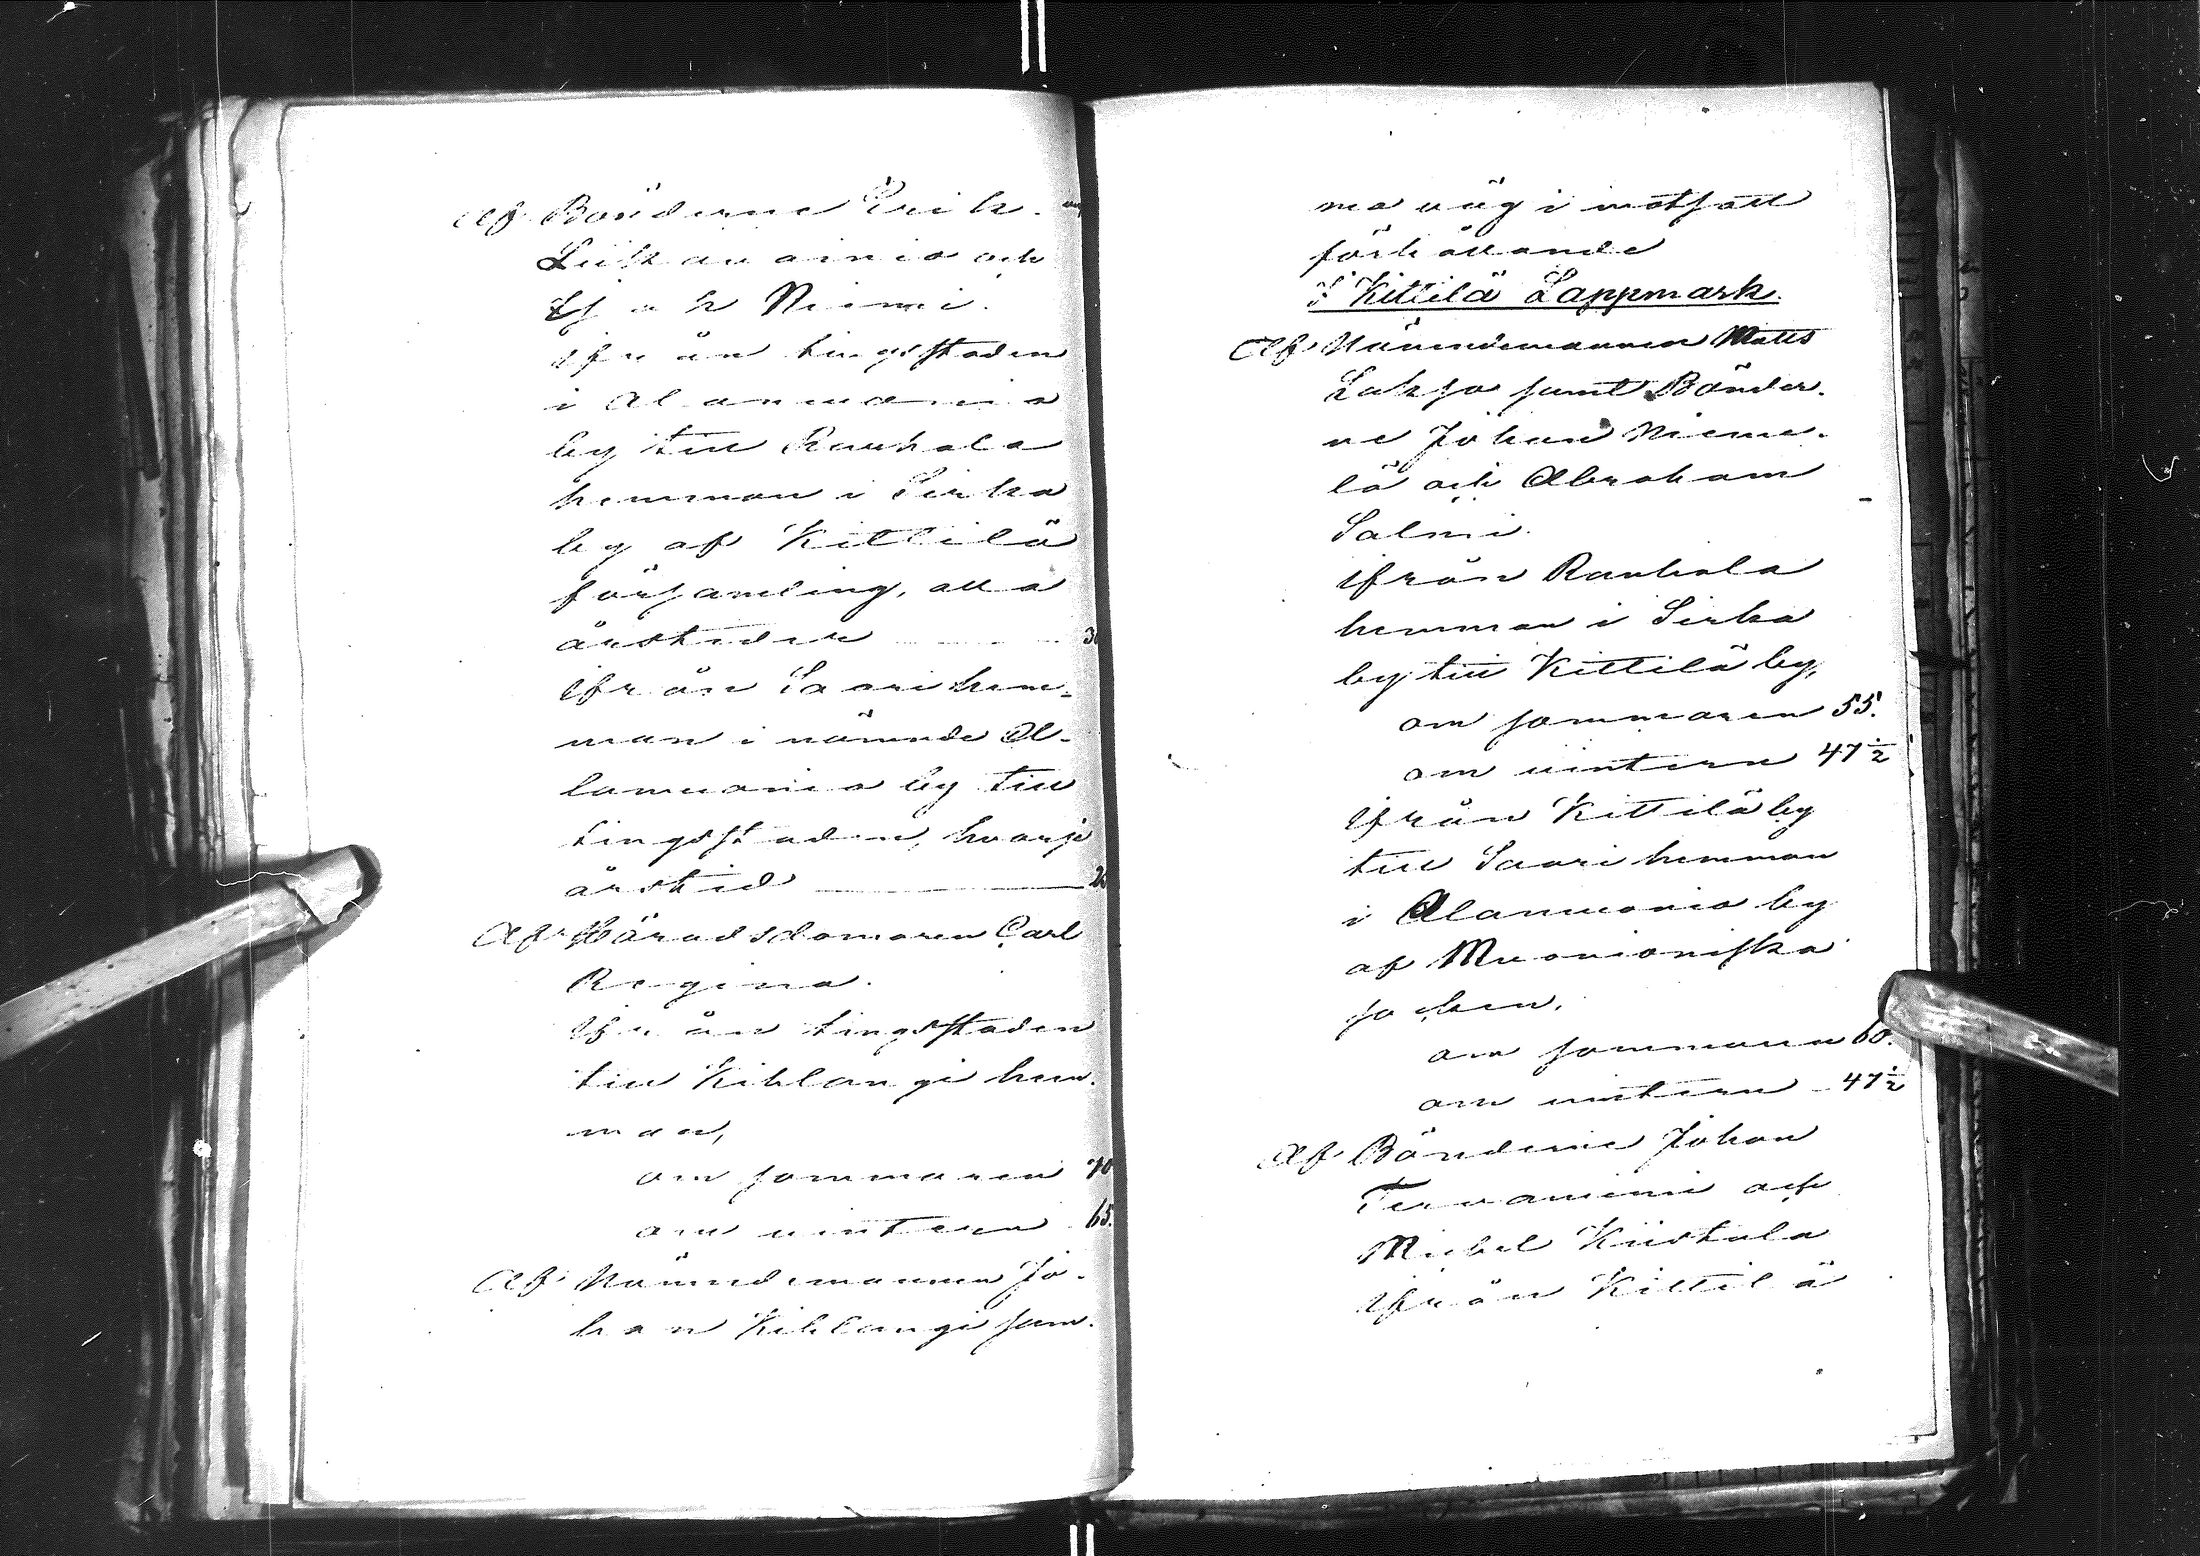 Af Bönderne Erik
Liikavainio och
Isak Niemi.
ifrån tingsstaden
i Alamuonio
by till Rauhala
hemman i Sirka
by af Kittilä
församling, alla
årstider 3
ifrån Saari hem-
man i nämnde A-
lamuonio by till
tingsstaden, hvarje
årstid 2
Af Häradsdomaren Carl
Regina.
ifrån tingsstaden
till Kihlangi hem-
man,
om sommaren 70
om vintern 65.
Af Nämndemannen Jo-
han Kihlangi sam-
ma väg i motsatt
förhållande
I Kittilä Lappmark.
Af Nämndemannen Matts
Lakso samt Bönder-
ne Johan Nieme-
lä och Abraham
Salmi.
ifrån Rauhala
hemman i Sirka
by till Kittilä by,
om sommaren 55.
om vintern 47½
ifrån Kittilä by
till Saari hemman
i Alamuonio by
af Muonioniska
socken,
om sommaren 60.
om vintern 47½
Af Bönderne Johan
Tervaniemi och
Michel Kiistala
ifrån Kittilä